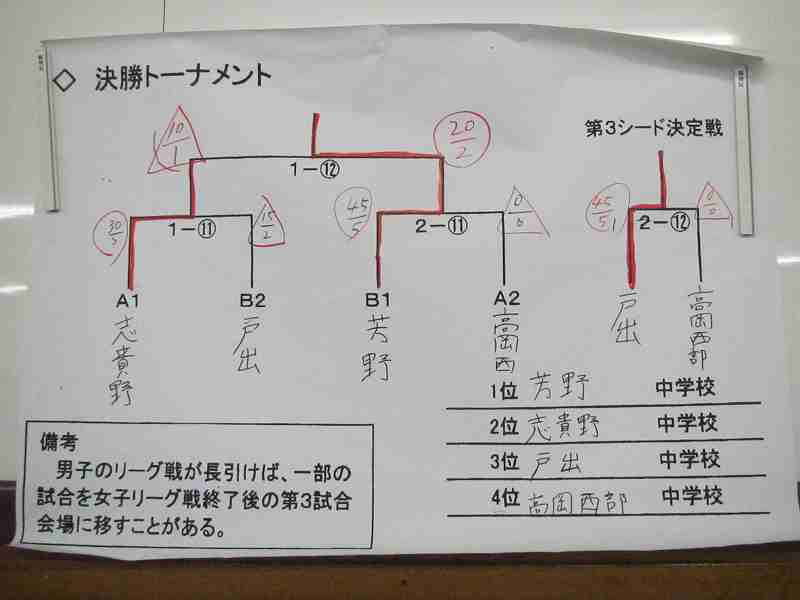 ◇ 決勝トーナメント
第3シード決定戦
10/1
20/2
1-⑫
30/3
1-⑪
15/2
45/5
2-⑪
0/0
45/5
2-⑫
0/0
A1
B2
B1
A2
志貴野
戸出
芳野
高岡西
戸出
高岡西部
1位 芳野 中学校
2位 志貴野 中学校
3位 戸出 中学校
4位 高岡西部 中学校
備考
男子のリーグ戦が長引けば、一部の
試合を女子リーグ戦終了後の第3試合
会場に移すことがある。